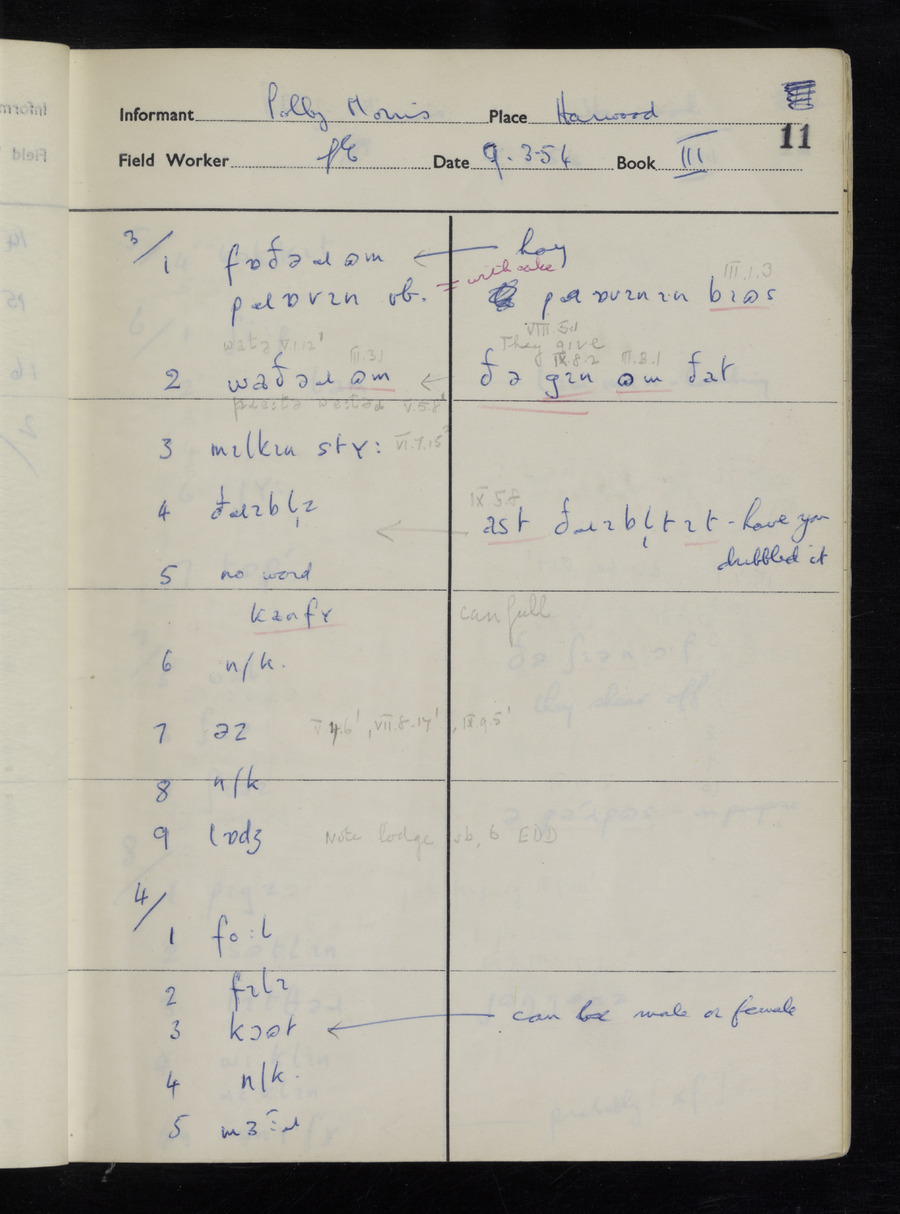 Informant Polly Morris Place Harwood
11
Field Worker Date 9.3.54 Book III
3/
1 fɒðəɹ əm ← hay
= with cake
III.1.3
pɹɒvɪn vb. pɹɒvɪnɪn bɪəs
VIII.5.1
They give
III.3.1 IX.8.2 III.8.1
2 waðəɹ əm ← ðə gɪn əm ðat
V.5.8
3 mɪlkɪn stʏ: VI.7.15
4 ðɹɪbl̩z
IX.5.8
← ast ðɹɪbl̩t ɪt - have you
dribbled it
5 no word
kanfʏ canfull
6 n/k.
7 əɪ V.4.6', VII.8.14', IX.9.5'
8 n/k
9 lɒdʒ Note lodge sb, 6 EDD
4/
1 fo:l
2 fɪlɪ
3 kɔət ← can be male or female
4 n/k.
5 mɜ̈:ɹ